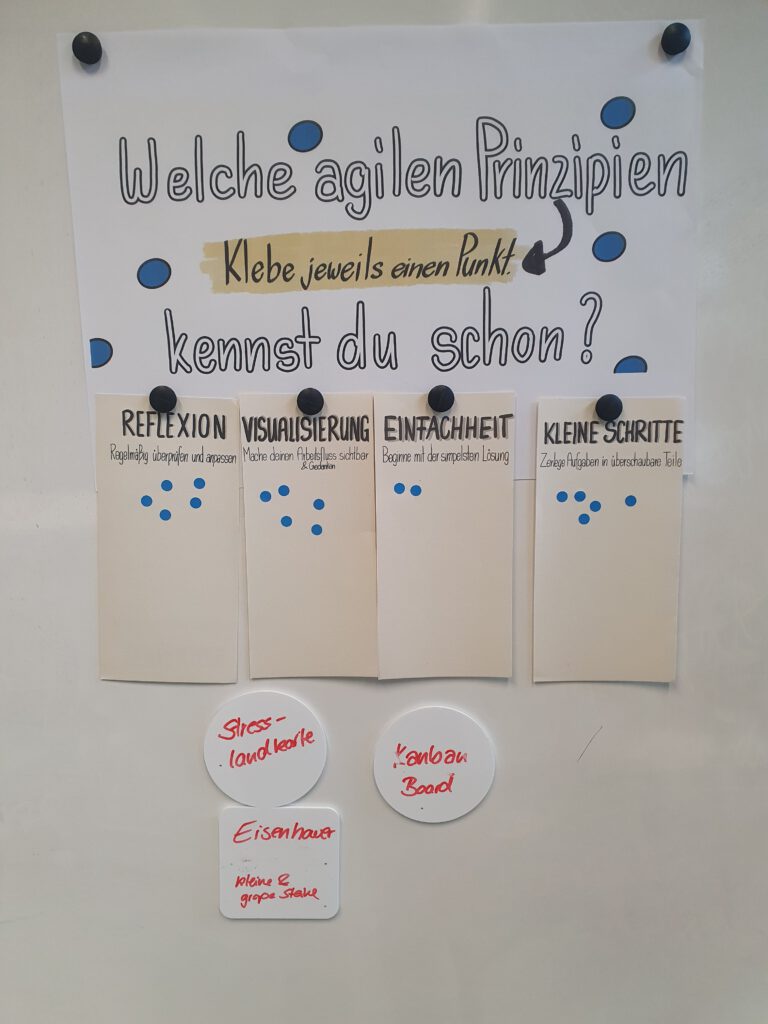 Welche agilen Prinzipien
Klebe jeweils einen Punkt.
kennst du schon?
REFLEXION
Regelmäßig überprüfen und anpassen
VISUALISIERUNG
Mache deinen Arbeitsfluss sichtbar
& Gedanken
EINFACHHEIT
Beginne mit der simpelsten Lösung
KLEINE SCHRITTE
Zerlege Aufgaben in überschaubare Teile
Stress-
landkarte
Kanban
Board
Eisenhower
kleine &
große Steine